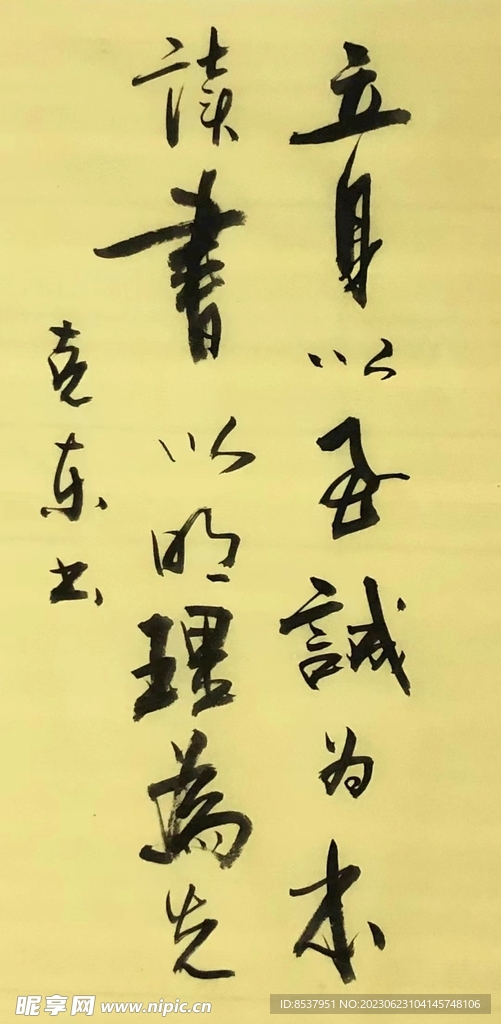 立身以至誠为本
读書以明理為先
克东书
昵享网 www.nipic.cn
ID:8537951 NO:20230623104145748106